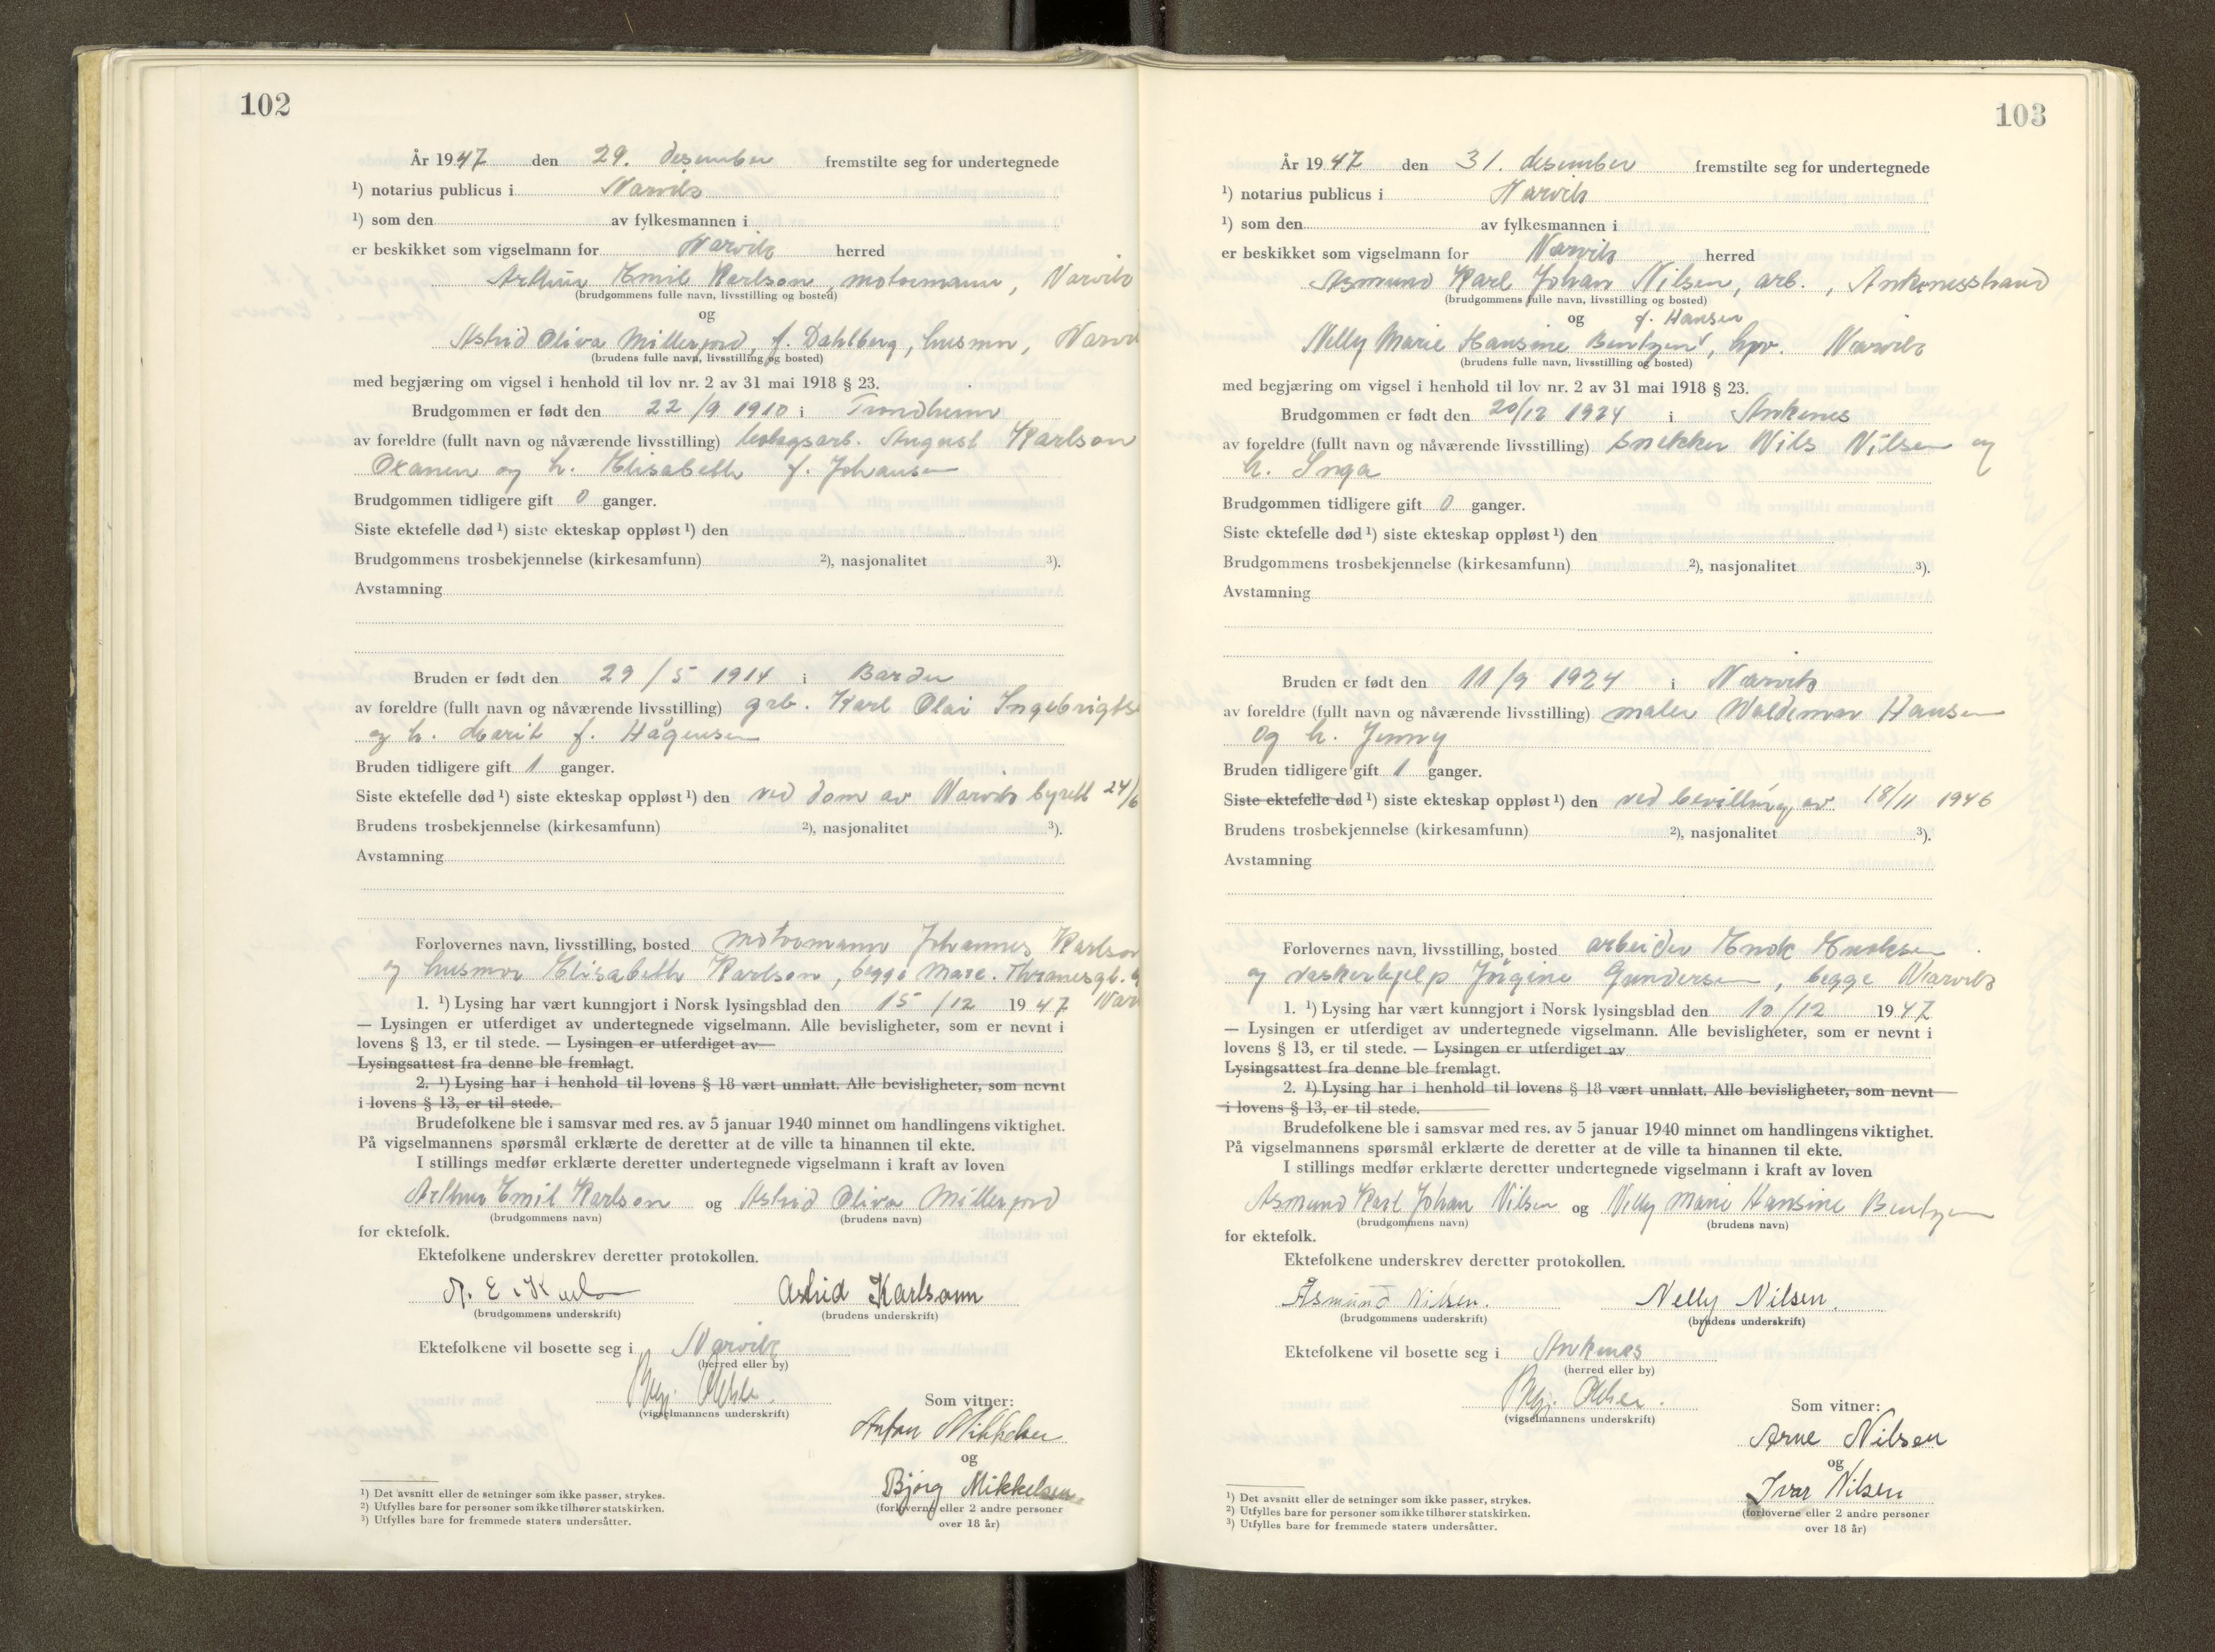 102
År 1947 den 29. desember fremstilte seg for undertegnede
¹) notarius publicus i Narvik
¹) som den av fylkesmannen i
er beskikket som vigselmann for Narvik herred
Arthur Emil Karlson, motormann, Narvik
(brudgommens fulle navn, livsstilling og bosted)
og
Astrid Oliva Millerjord, f. Dahlberg, husmor, Narvi
(brudens fulle navn, livsstilling og bosted)
med begjæring om vigsel i henhold til lov nr. 2 av 31 mai 1918 § 23.
Brudgommen er født den 22/9 1910 i Trondheim
av foreldre (fullt navn og nåværende livsstilling) bolagsarb. August Karlson
Oxanen og h. Elisabeth f. Johansen
Brudgommen tidligere gift 0 ganger.
Siste ektefelle død ¹) siste ekteskap oppløst ¹) den
Brudgommens trosbekjennelse (kirkesamfunn) ²), nasjonalitet ³).
Avstamning
Bruden er født den 29/5 1914 i Bardu
av foreldre (fullt navn og nåværende livsstilling) grb. Karl Olai Ingebrigts
og h. Marit f. Hågensen
Bruden tidligere gift 1 ganger.
Siste ektefelle død ¹) siste ekteskap oppløst ¹) den ved dom av Narvik byrett 24/6
Brudens trosbekjennelse (kirkesamfunn) ²), nasjonalitet ³).
Avstamning
Forlovernes navn, livsstilling, bosted motormann Johannes Karlson
og husmor Elisabeth Karlson, begge Marc. Thranesgt.
1. ¹) Lysing har vært kunngjort i Norsk lysingsblad den 15/12 1947 Narv
— Lysingen er utferdiget av undertegnede vigselmann. Alle bevisligheter, som er nevnt i
lovens § 13, er til stede. — Lysingen er utferdiget av
Lysingsattest fra denne ble fremlagt.
2. ¹) Lysing har i henhold til lovens § 18 vært unnlatt. Alle bevisligheter, som nevnt
i lovens § 13, er til stede.
Brudefolkene ble i samsvar med res. av 5 januar 1940 minnet om handlingens viktighet.
På vigselmannens spørsmål erklærte de deretter at de ville ta hinannen til ekte.
I stillings medfør erklærte deretter undertegnede vigselmann i kraft av loven
Arthur Emil Karlson og Astrid Oliva Millerjord
(brudgommens navn) (brudens navn)
for ektefolk.
Ektefolkene underskrev deretter protokollen.
A. E. Karlso Astrid Karlsonn
(brudgommens underskrift) (brudens underskrift)
Ektefolkene vil bosette seg i Narvik
(herred eller by)
(vigselmannens underskrift)
Som vitner:
Anton Mikkelsen
og
Bjørg Mikkelsen
(forloverne eller 2 andre personer
over 18 år)
¹) Det avsnitt eller de setninger som ikke passer, strykes.
²) Utfylles bare for personer som ikke tilhører statskirken.
³) Utfylles bare for fremmede staters undersåtter.
103
År 1947 den 31. desember fremstilte seg for undertegnede
¹) notarius publicus i Narvik
¹) som den av fylkesmannen i
er beskikket som vigselmann for Narvik herred
Asmund Karl Johan Nilsen, arb., Ankenesstrand
(brudgommens fulle navn, livsstilling og bosted)
og f. Hansen
Nelly Marie Hansine Bentzen, hpr. Narvik
(brudens fulle navn, livsstilling og bosted)
med begjæring om vigsel i henhold til lov nr. 2 av 31 mai 1918 § 23.
Brudgommen er født den 20/12 1924 i Ankenes
av foreldre (fullt navn og nåværende livsstilling) snekker Nils Nilsen og
h. Inga
Brudgommen tidligere gift 0 ganger.
Siste ektefelle død ¹) siste ekteskap oppløst ¹) den
Brudgommens trosbekjennelse (kirkesamfunn) ²), nasjonalitet ³).
Avstamning
Bruden er født den 11/9 1924 i Narvik
av foreldre (fullt navn og nåværende livsstilling) maler Waldemar Hansen
og h. Jenny
Bruden tidligere gift 1 ganger.
Siste ektefelle død ¹) siste ekteskap oppløst ¹) den ved bevilling av 18/11 1946
Brudens trosbekjennelse (kirkesamfunn) ²), nasjonalitet ³).
Avstamning
Forlovernes navn, livsstilling, bosted arbeider Enok Enoksen
og vaskerhjelp Jørgine Gundersen, begge Narvik
1. ¹) Lysing har vært kunngjort i Norsk lysingsblad den 10/12 1947
— Lysingen er utferdiget av undertegnede vigselmann. Alle bevisligheter, som er nevnt i
lovens § 13, er til stede. — Lysingen er utferdiget av
Lysingsattest fra denne ble fremlagt.
2. ¹) Lysing har i henhold til lovens § 18 vært unnlatt. Alle bevisligheter, som nevnt
i lovens § 13, er til stede.
Brudefolkene ble i samsvar med res. av 5 januar 1940 minnet om handlingens viktighet.
På vigselmannens spørsmål erklærte de deretter at de ville ta hinannen til ekte.
I stillings medfør erklærte deretter undertegnede vigselmann i kraft av loven
Asmund Karl Johan Nilsen og Nelly Marie Hansine Bentzen
(brudgommens navn) (brudens navn)
for ektefolk.
Ektefolkene underskrev deretter protokollen.
Åsmund Nilsen. Nelly Nilsen.
(brudgommens underskrift) (brudens underskrift)
Ektefolkene vil bosette seg i Ankenes
(herred eller by)
(vigselmannens underskrift)
Som vitner:
Arne Nilsen
og
Ivar Nilsen
(forloverne eller 2 andre personer
over 18 år)
¹) Det avsnitt eller de setninger som ikke passer, strykes.
²) Utfylles bare for personer som ikke tilhører statskirken.
³) Utfylles bare for fremmede staters undersåtter.